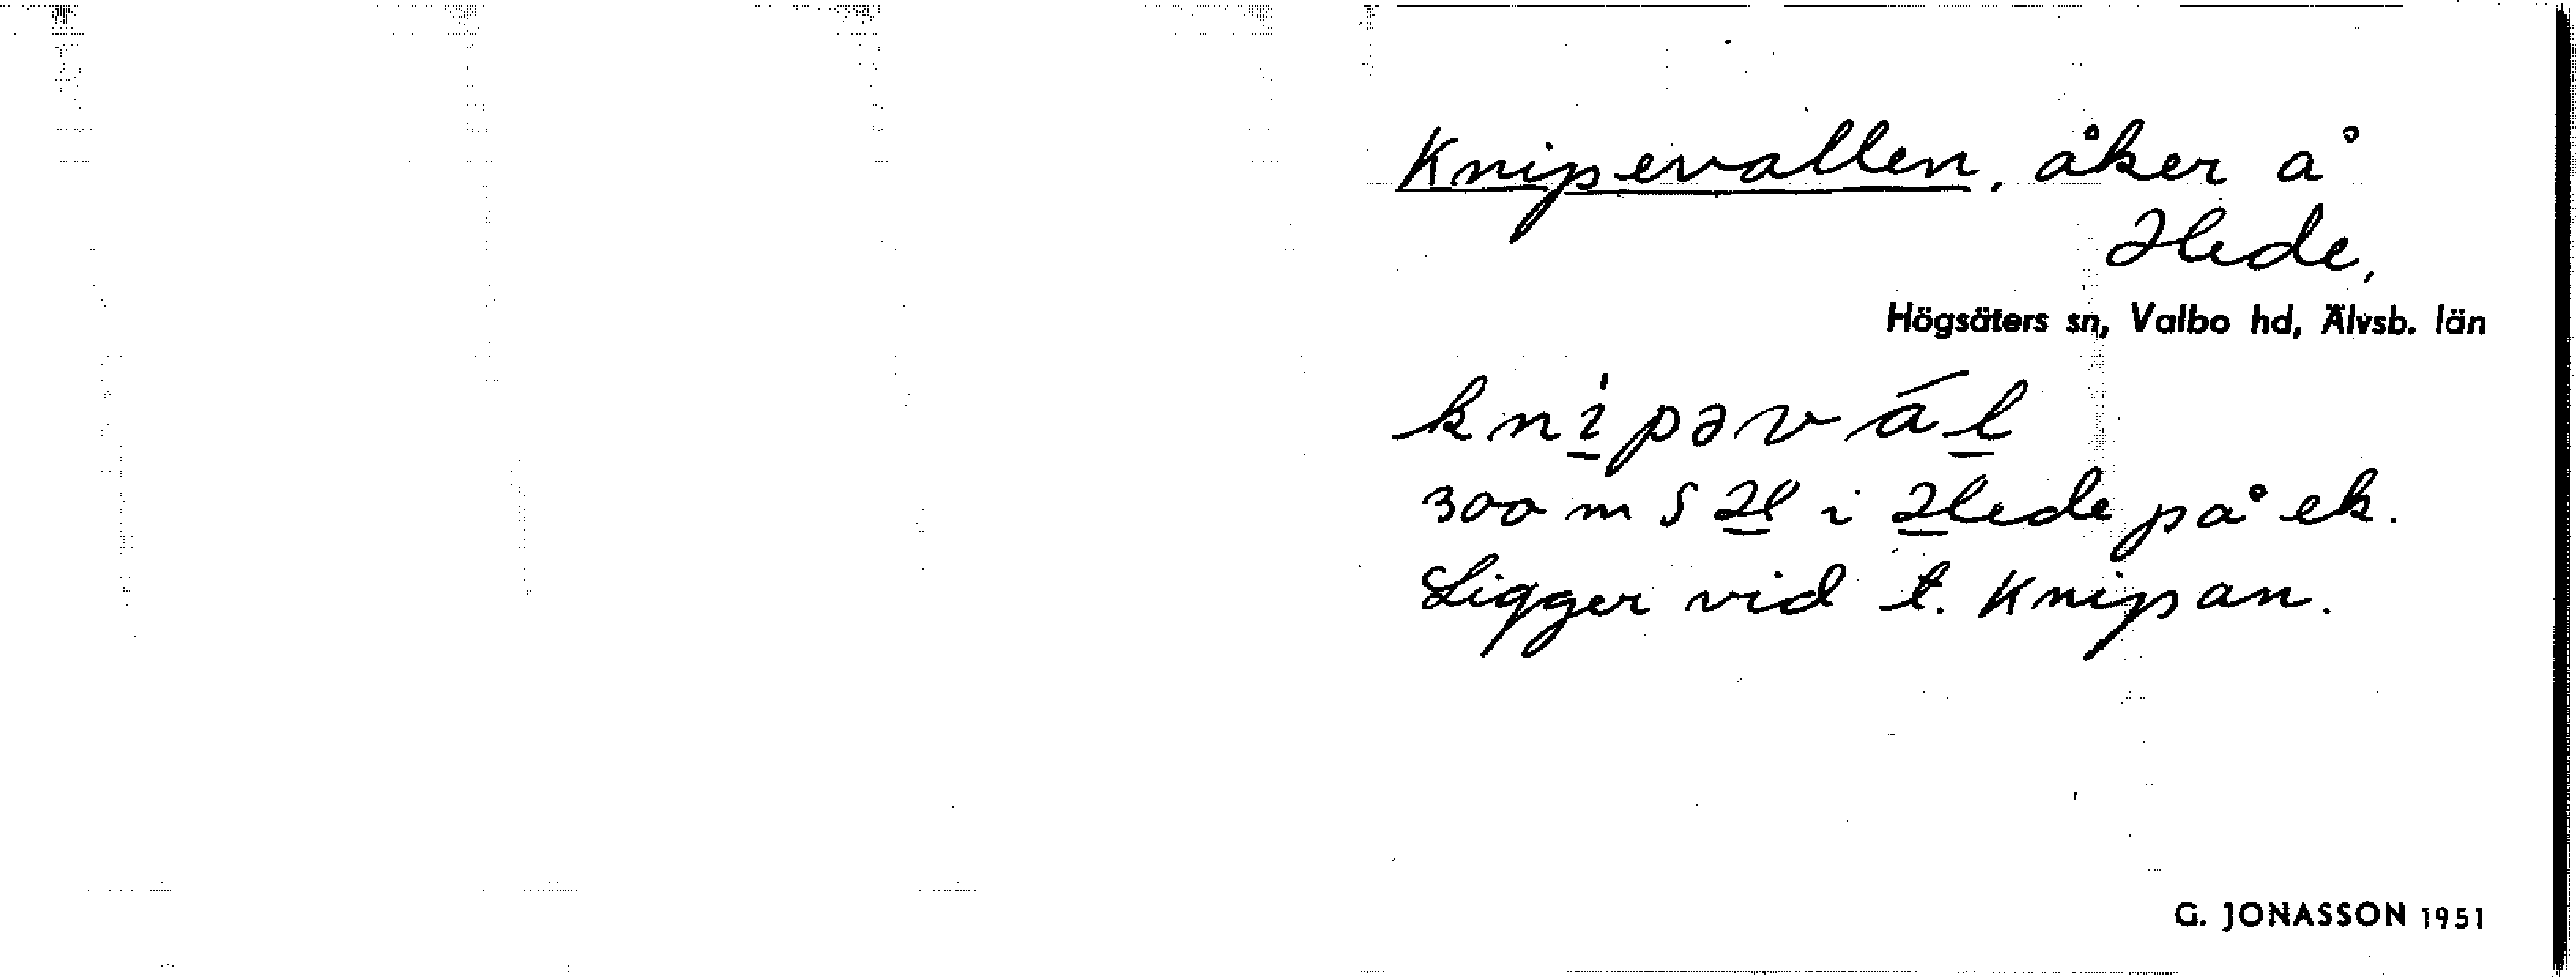 Knipevallen, åker å
Hede,
Högsäters sn, Valbo hd, Älvsb. län
knì̱pəvál̲
300 m S H̲l i H̲ede på ek.
Ligger vid t. Knipan.
G. JONASSON 1951